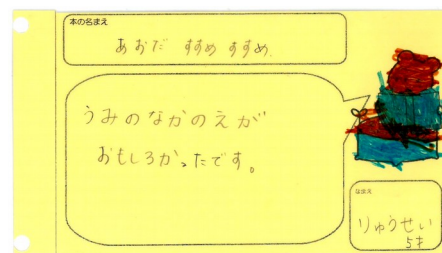 本の名まえ
あおだ すすめ すすめ
うみのなかのえが
おもしろかったです。
なまえ
りゅうせい
5才